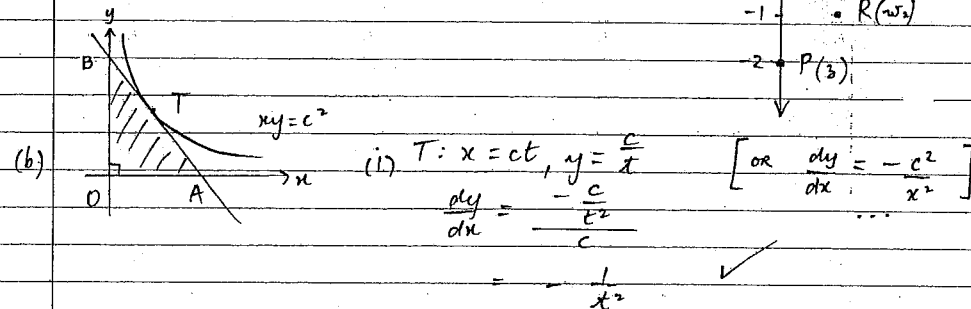 -1 R(w₂)
-2 P(z)
y
B
T
xy=c²
x
O
A
(b)
(i) T: x = ct, y = c/t [OR dy/dx = -c²/x² ]
...
dy/dx = (-c/t²)/c
= -1/t²